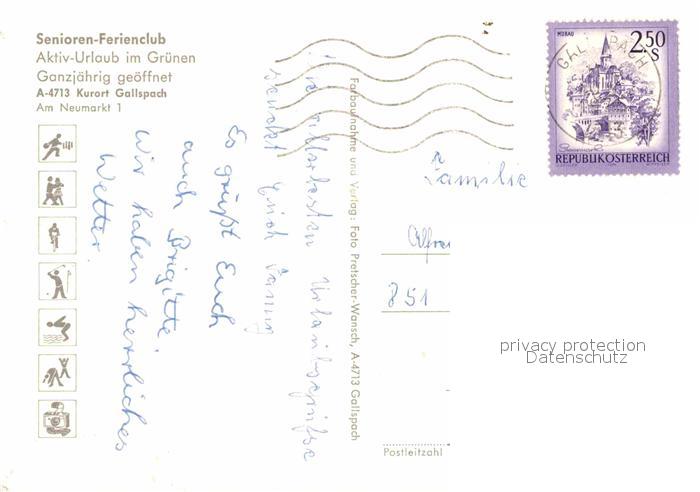 Senioren-Ferienclub
Aktiv-Urlaub im Grünen
Ganzjährig geöffnet
A-4713 Kurort Gallspach
Am Neumarkt 1
Die allerbesten Urlaubsgrüsse
sendet Erich
Es grüßt Euch
auch Brigitte
Wir haben herrliches
Wetter
Farbaufnahme und Verlag: Foto Pretscher-Wansch, A-4713 Gallspach
MURAU
2.50
S
GALLSPACH
REPUBLIK ÖSTERREICH
Familie
Alfre
851
privacy protection
Datenschutz
Postleitzahl